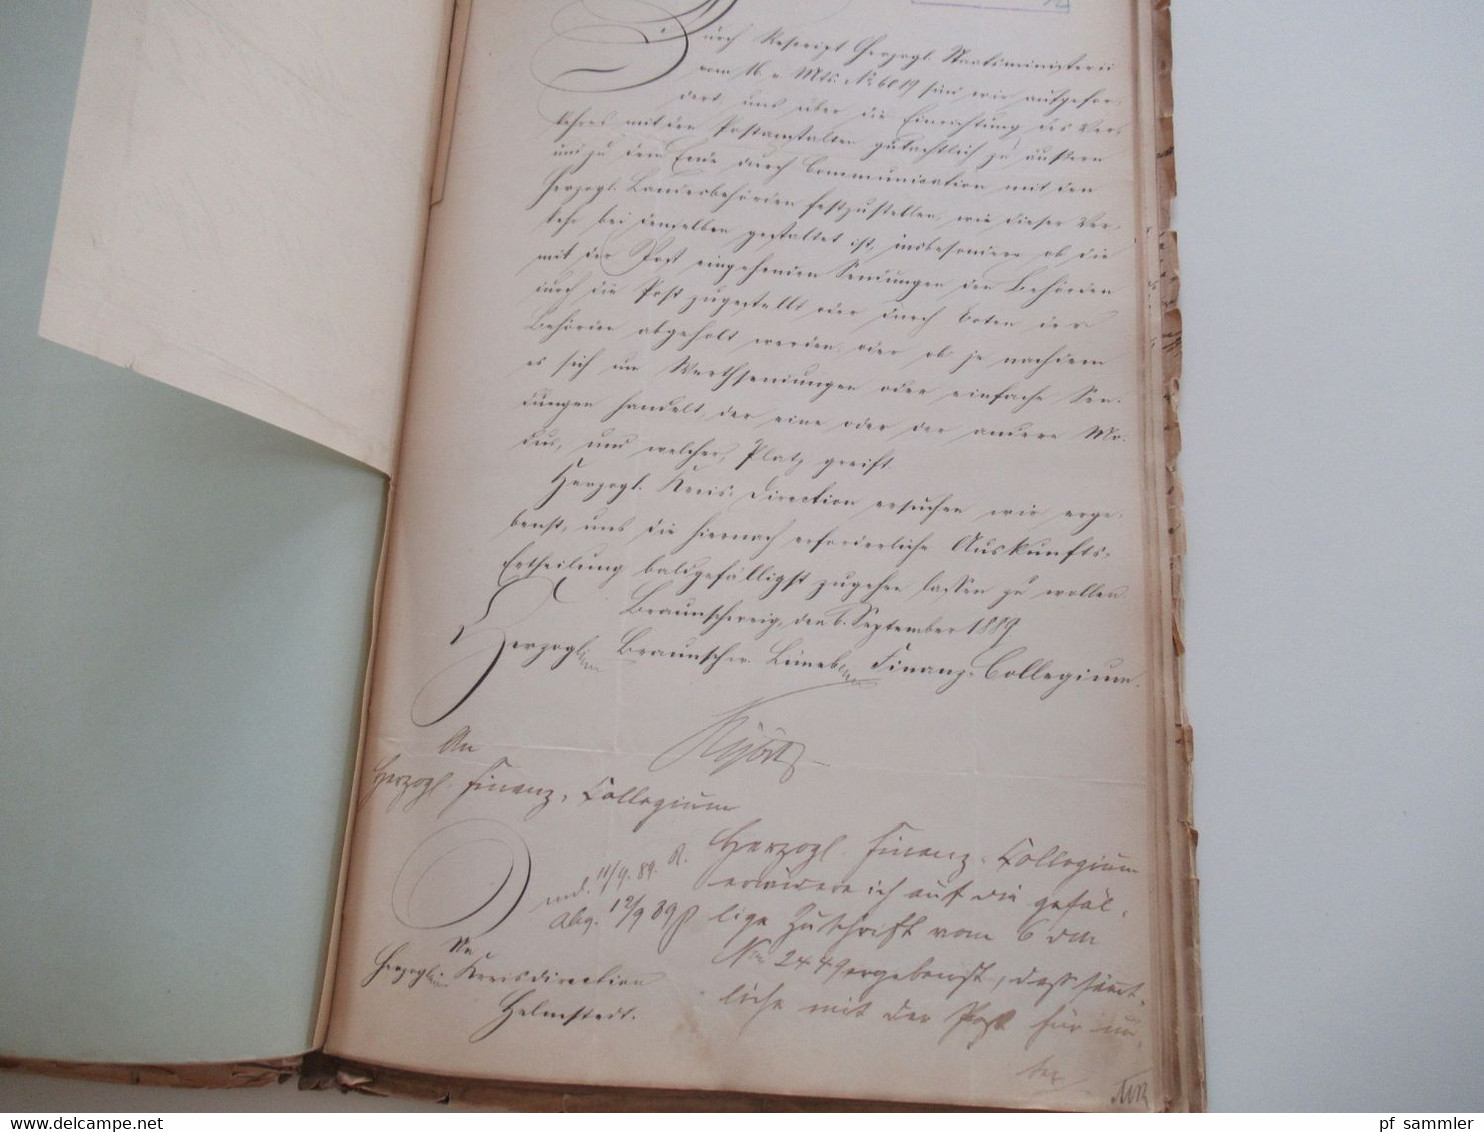 Durch Rescript Herzogl. Staatsministerii
vom 16. v. Mts. No 6019 sind wir aufgefor-
dert, uns über die Einrichtung des Ver-
kehres mit den Postanstalten gutachtlich zu äußern
und zu dem Ende durch Communication mit den
Herzogl. Landesbehörden festzustellen, wie dieser Ver-
kehr bei denselben gestaltet ist, insbesondere ob die
mit der Post eingehenden Sendungen den Behörden
durch die Post zugestellt oder durch Boten der
Behörden abgeholt werden oder ob je nachdem
es sich um Werthsendungen oder einfache Sen-
dungen handelt, der eine oder der andere Mo-
dus, und welcher, Platz greift.
Herzogl. Kreis-Direction ersuchen wir erge-
benst, uns die hiernach erforderliche Auskunfts-
Ertheilung baldgefälligst zugehen lassen zu wollen.
Braunschweig, den 6. September 1889
Herzoglichen Braunschw. Lüneb. Finanz-Collegium.
An
Herzogl. Finanz-Collegium
Herzogl. Finanz-Collegium
erwidere ich auf die gefäl-
lige Zuschrift vom 6 dM
No 2449 ergebenst, daß sämt-
liche mit der Post für un-
md. 11/9. 89. R.
abg. 12/9 89
An
Herzogliche Kreisdirection
Helmstedt.
pf_sammler